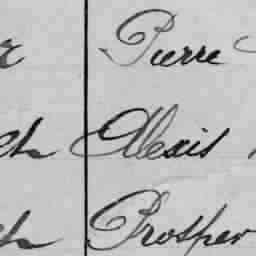 Pierre
Alexis
Prosper